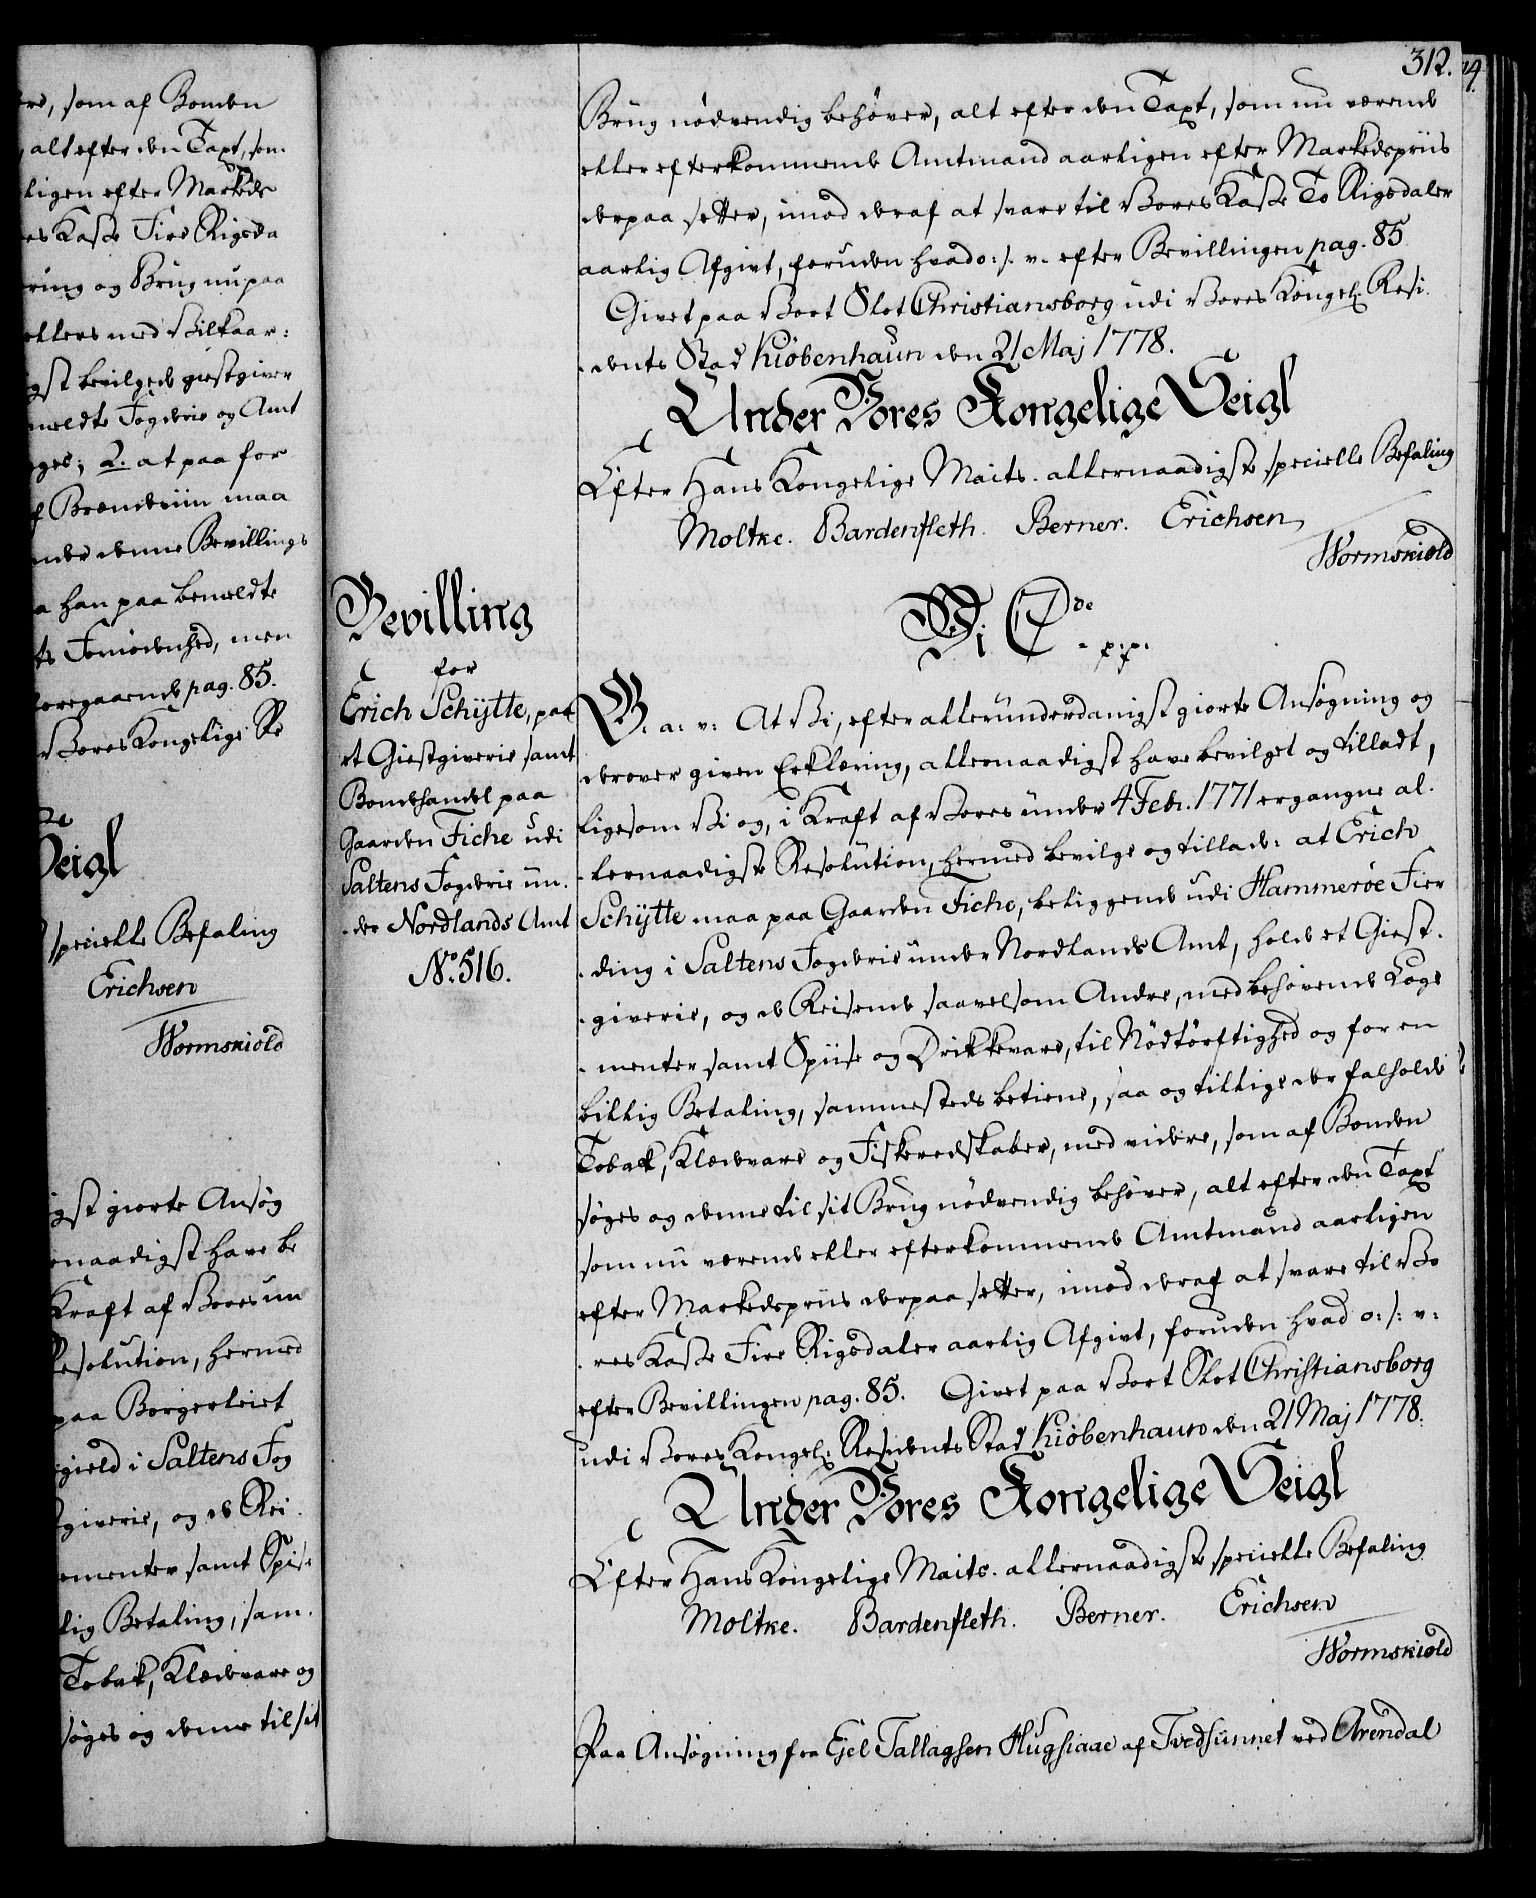 ere, som af Bonden
alt efter den Taxt, som
ligen efter Markeds
es Kasse Fire Rigsda
ring og Brug nu paa
ellers med Vilkaar:
gst bevilgede giestgiver
meldte Fogderie og Amt
ges; 2. at paa for
f Brændeviin maa
nde denne Bevillings
a han paa bemeldte
ts Formodenhed, men
foregaaende pag. 85.
Vores Kongelige Re
Seigl
specielle Befaling
Erichsen
Wormskiold
igst giorte Ansøg
rnaadigst have be
Kraft af Vores un
Resolution, hermed
paa Borgerleiet
gield i Saltens Fog
giverie, og de Rei
ementer samt Spise
lig Betaling, sam.
Tobak, Klædevare og
søges og denne til sit
312.
Brug nødvendig behøver, alt efter den Taxt, som nu værende
eller efterkommende Amtmand aarligen efter Markedspriis
derpaa setter, imod deraf at svare til Vores Kasse To Rigsdaler
aarlig Afgivt, foruden hvad o: s. v. efter Bevillingen pag. 85
Givet paa Vort Slot Christiansborg udi Vores Kongel: Resi
dents Stad Kiøbenhaun den 21 Maj 1778.
Under Vores Kongelige Seigl
Efter Hans Kongelige Maits. allernaadigste specielle Befaling
Moltke. Bardenfleth. Berner. Erichsen
Wormskiold
Bevilling
for
Erich Schÿtte, paa
et Giestgiverie samt
Bondehandel paa
Gaarden Fiche udi
Saltens Fogderie un.
der Nordlands Amt
No. 516.
Vi C 7de p:p:
G. a: v: At Vi, efter allerunderdanigst giorte Ansøgning og
derover given Erklæring, allernaadigst have bevilget og tilladt,
ligesom Vi og, i Kraft af Vores under 4 Febr. 1771 ergangne al.
lernaadigste Resolution, hermed bevilge og tillade: at Erich
Schÿtte maa paa Gaarden Ficho, beliggende udi Hammerøe Fier
ding i Saltens Fogderie under Nordlands Amt, holde et Giest.
giverie, og de Reisende saavelsom Andre, med behøvende Loge
menter samt Spiise og Drikkevare, til Nødtørftighed og for en
billig Betaling, sammesteds betiene, saa og tillige der falholde
Tobak, Klædevare og Fiskeredskaber, med videre, som af Bonden
søges og denne til sit Brug nødvendig behøver, alt efter den Taxt
som nu værende eller efterkommende Amtmand aarligen
efter Markedspriis derpaa setter, imod deraf at svare til Vo
res Kasse Fire Rigsdaler aarlig Afgivt, foruden hvad o: s: v:
efter Bevillingen pag. 85. Givet paa Vort Slot Christiansborg
udi Vores Kongel: Residents Stad Kiøbenhaun den 21 Maj 1778.
Under Vores Kongelige Seigl
Efter Hans Kongelige Maits. allernaadigste specielle Befaling
Moltke. Bardenfleth. Berner. Erichsen
Wormskiold
Paa Ansøgning fra Ejel Tallagsen Hugsiaae af Tvedsunnet ved Arendal